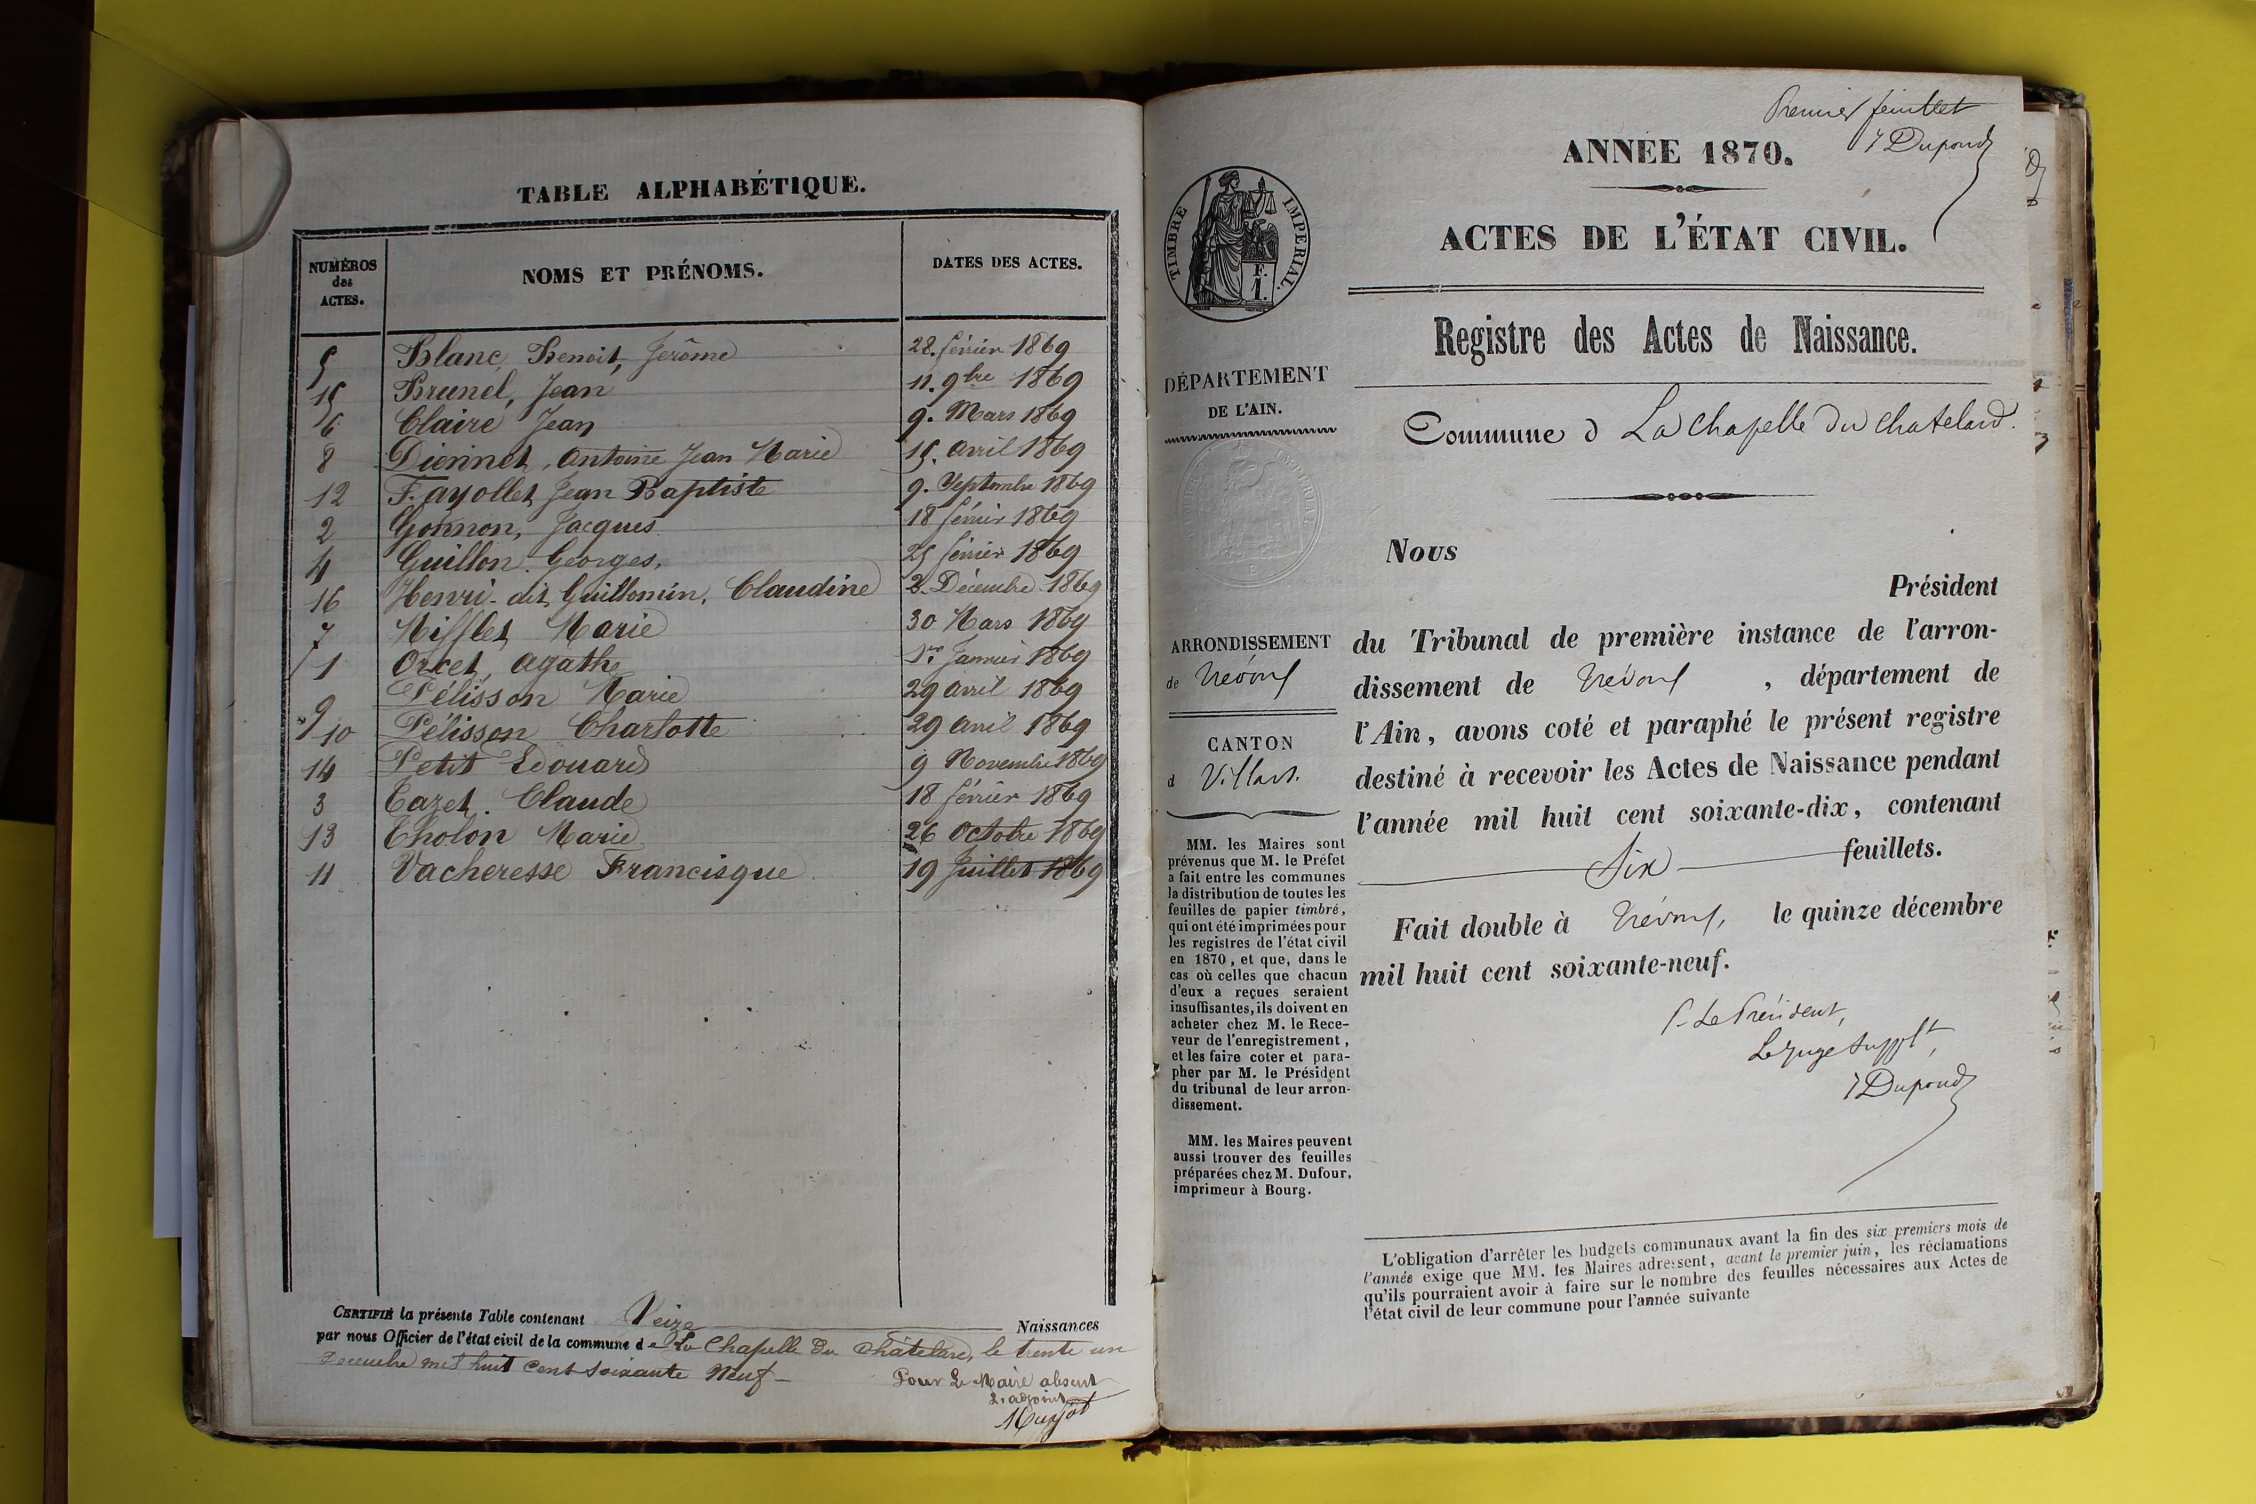 TABLE ALPHABÉTIQUE.
NUMÉROS des ACTES. NOMS ET PRÉNOMS. DATES DES ACTES.
5 Blanc, Benoit, Jerôme 28. février 1869
15 Brunel, Jean 11. 9bre 1869
6 Claire Jean 9. Mars 1869
8 Diennet, Antoine Jean Marie 15. avril 1869
12 Fayollet Jean Baptiste 9. Septembre 1869
2 Gonnon, Jacques 18 février 1869
4 Guillon Georges, 25 février 1869
16 Henri dit Guillomin, Claudine 2. Décembre 1869
7 Mifflet Marie 30 Mars 1869
1 Orcet, agathe 1er Janvier 1869
9 Pélisson Marie 29 avril 1869
10 Pélisson Charlotte 29 avril 1869
14 Petit Edouard 9 Novembre 1869
3 Tazet. Claude 18 février 1869
13 Tholon Marie 26 octobre 1869
11 Vacheresse Francisque 19 Juillet 1869
CERTIFIÉ la présente Table contenant Seize Naissances
par nous Officier de l'état civil de la commune de La Chapelle du Châtelard, le trente un
Décembre mil huit cent soixante Neuf
Pour Le Maire absent
L'adjoint
Premier feuillet
Dupond
ANNÉE 1870.
ACTES DE L'ÉTAT CIVIL.
TIMBRE IMPERIAL.
F.
1.
Registre des Actes de Naissance.
DÉPARTEMENT
DE L'AIN.
Commune d La chapelle du chatelard.
Nous
Président
du Tribunal de première instance de l'arron-
dissement de Trévoux, département de
l'Ain, avons coté et paraphé le présent registre
destiné à recevoir les Actes de Naissance pendant
l'année mil huit cent soixante-dix, contenant
Six feuillets.
Fait double à Trévoux, le quinze décembre
mil huit cent soixante-neuf.
P. Le Président,
Le Juge Supplt,
Dupond
ARRONDISSEMENT
de Trévoux
CANTON
d Villars.
MM. les Maires sont
prévenus que M. le Préfet
a fait entre les communes
la distribution de toutes les
feuilles de papier timbré,
qui ont été imprimées pour
les registres de l'état civil
en 1870, et que, dans le
cas où celles que chacun
d'eux a reçues seraient
insuffisantes, ils doivent en
acheter chez M. le Rece-
veur de l'enregistrement,
et les faire coter et para-
pher par M. le Président
du tribunal de leur arron-
dissement.
MM. les Maires peuvent
aussi trouver des feuilles
préparées chez M. Dufour,
imprimeur à Bourg.
L'obligation d'arrêter les budgets communaux avant la fin des six premiers mois de
l'année exige que MM. les Maires adressent, avant le premier juin, les réclamations
qu'ils pourraient avoir à faire sur le nombre des feuilles nécessaires aux Actes de
l'état civil de leur commune pour l'année suivante